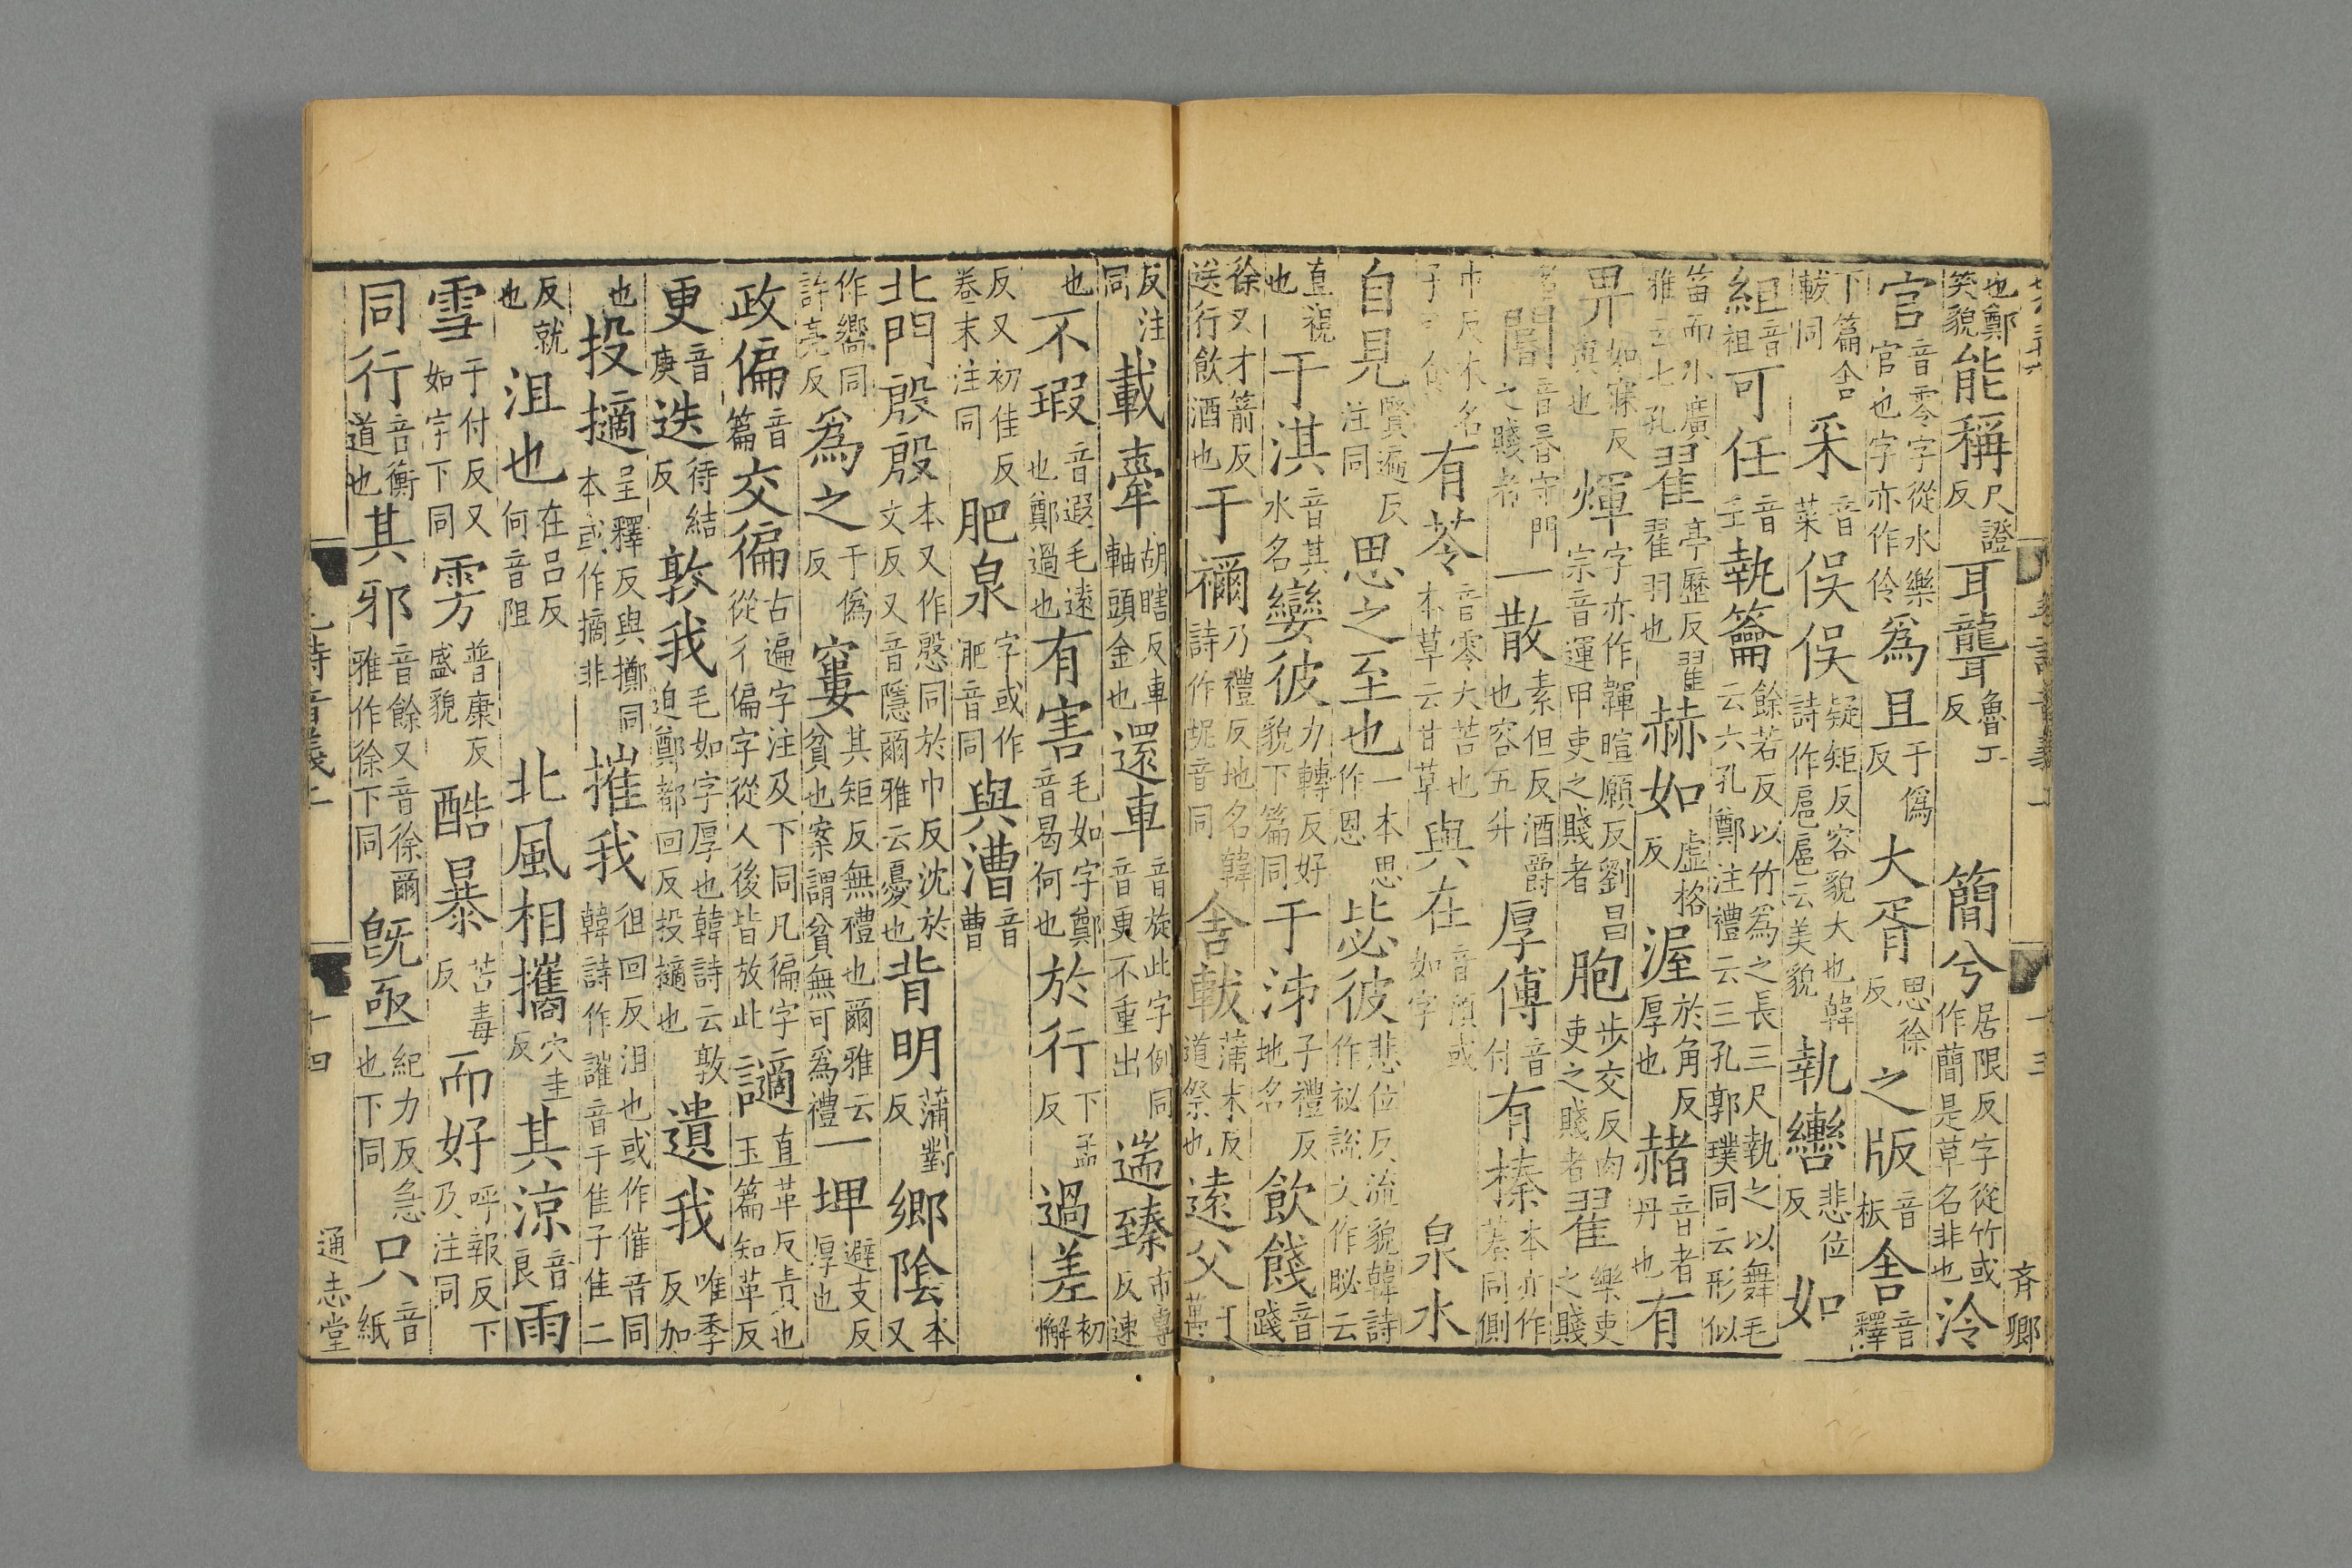 也鄭笑貌能稱尺證反耳聾魯工反簡兮居限反字從竹或作蕑是草名非也泠
官音零字從水樂官也字亦作伶爲且于僞反大胥思徐反之版音板舍音釋
下篇舍軷同采音菜俣俣疑矩反容貌大也韓詩作扈扈云美貌執轡悲位反如
組音祖可任音壬執籥餘若反以竹爲之長三尺執之以舞毛云六孔鄭注禮云三孔郭璞同云形似
笛而小廣雅云七孔翟亭歷反翟翟羽也赫如虛格反渥於角反厚也赭音者丹也有
畀如寐反與也煇字亦作韗暄願反劉昌宗音運甲吏之賤者胞步交反肉吏之賤者翟樂吏之賤
閽音昏守門之賤者一散素但反酒爵也容五升厚傅音付有榛本亦作蓁同側
巾反木名有苓音零大苦也本草云甘草與在音預或如字泉水
自見賢遍反注同思之至也一本思作恩毖彼悲位反流貌韓詩作祕說文作䀣云
直視也于淇音其水名孌彼力轉反好貌下篇同于泲子禮反地名飲餞音踐
徐又才箭反送行飲酒也于禰乃禮反地名韓詩作坭音同舍軷蒲末反道祭也遠父于萬
反注同載舝胡瞎反車軸頭金也還車音旋此字例同音更不重出遄臻市專反速
也不瑕音遐毛遠也鄭過也有害毛如字鄭音曷何也於行下孟反過差初懈
反又初佳反卷末注同肥泉字或作淝音同與漕音曹
北門殷殷本又作慇同於巾反沈於文反又音隱爾雅云憂也背明蒲對反鄉陰本又
作嚮同許亮反爲之于僞反窶其矩反無禮也爾雅云貧也案謂貧無可爲禮一埤避支反厚也
政偏音篇交徧古遍字注及下同凡徧字從彳偏字從人後皆放此讁直革反責也玉篇知革反
更音庚迭待結反敦我毛如字厚也韓詩云敦迫鄭都回反投擿也遺我唯季反加
也投擿呈釋反與擲同本或作摘非摧我徂回反沮也或作催音同韓詩作讙音于隹子隹二
反就也沮也在呂反何音阻北風相攜穴圭反其涼音良雨
雪于付反又如字下同雱普康反盛貌酷暴苦毒反而好呼報反下及注同
同行音衡道也其邪音餘又音徐爾雅作徐下同旣亟紀力反急也下同只音紙
十三
齊卿
十四
通志堂